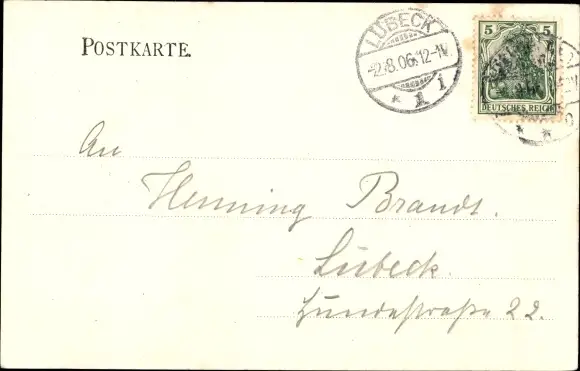 POSTKARTE.
LÜBECK
-2.8.06.12-1V.
* 1 1
5 5
DEUTSCHES REICH
An
Henning Brandt.
Lübeck.
Hundestraße 22.